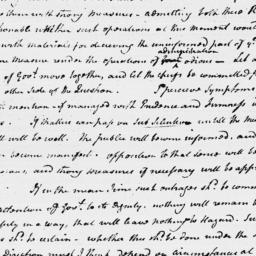 them with strong measures - admitting both these
whether such operations at the moment would
with materials for deceiving the uninformed part of
measure under the operation of odious - Let
of Govt. move together, and let the chiefs be committed
other side of the Question. I perceive Symptoms
mention - if managed with Prudence and firmness
if matters can pass on Sub Silentio until the
will be well. The public will become informed, and
become manifest. opposition to that sense will be
and strong measures if necessary will be
If in the mean Time such outrages shd. be
attention of Govt. to its dignity. nothing will remain
in a way, that will leave nothing to Hazard.
shd. be certain - whether this shd. be done under the
Direction must I think depend on circumstances at